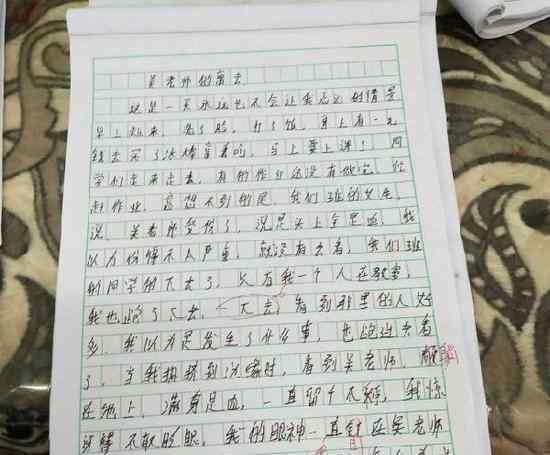 吴老师的离去
这是一天永远也不会让我忘记的情景
早上起来，洗了脸，打了饭，身上有一元
钱去买了冰棒拿着吃，马上要上课！同
学们走来走去，有的作业还没有做完，
作业，意想不到的是，我们班的女生
说，吴老师受伤了，说是头上全是血，我
以为伤情不太严重，就没有去看，我们班
的同学都下去了，只有我一个人在教室，
我也跑了下去，下去，看到那里的人好
多，我以为是发生了什么事，也跑过去看
了，当我拥挤到次时，看到吴老师，
在地上，满身是血，一直留个不停，我惊
得不敢眨眼，我的眼神一直在吴老师